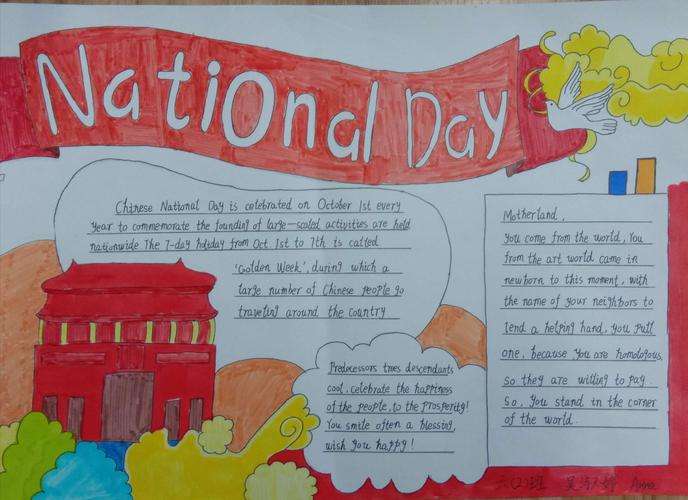 National Day
Chinese National Day is celebrated on October 1st every
year to commemorate the founding of large-scaled activities are held
nationwide The 7-day holiday from Oct 1st to 7th is called
'Golden Week', during which a
large number of Chinese people go
traveling around the country
Motherland,
You come from the world, You
from the art world came in
newborn to this moment, with
the name of your neighbors to
lend a helping hand, you pull
one, because you are homologous,
so they are willing to pay
So, you stand in the corner
of the world.
Predecessors trees descendants
cool, celebrate the happiness
of the people, to the prosperity!
You smile often a blessing,
wish you happy!
班 Anna